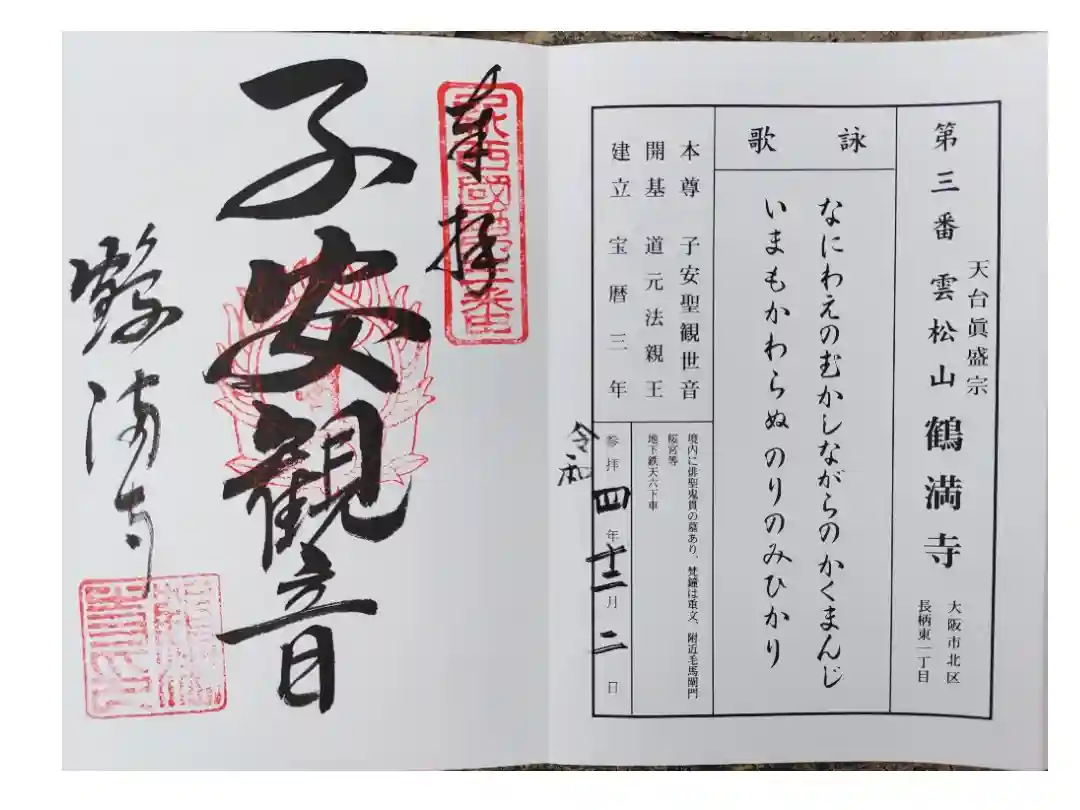 天台眞盛宗
第三番 雲松山 鶴満寺
大阪市北区
長柄東一丁目
詠歌
なにわえのむかしながらのかくまんじ
いまもかわらぬのりのみひかり
本尊 子安聖観世音
開基 道元法親王
建立 宝暦三年
境内に俳聖鬼貫の墓あり、梵鐘は重文、附近毛馬閘門
桜宮等
地下鉄天六下車
参拝 令和四年十二月二日
奉拝
子安観音
鶴満寺